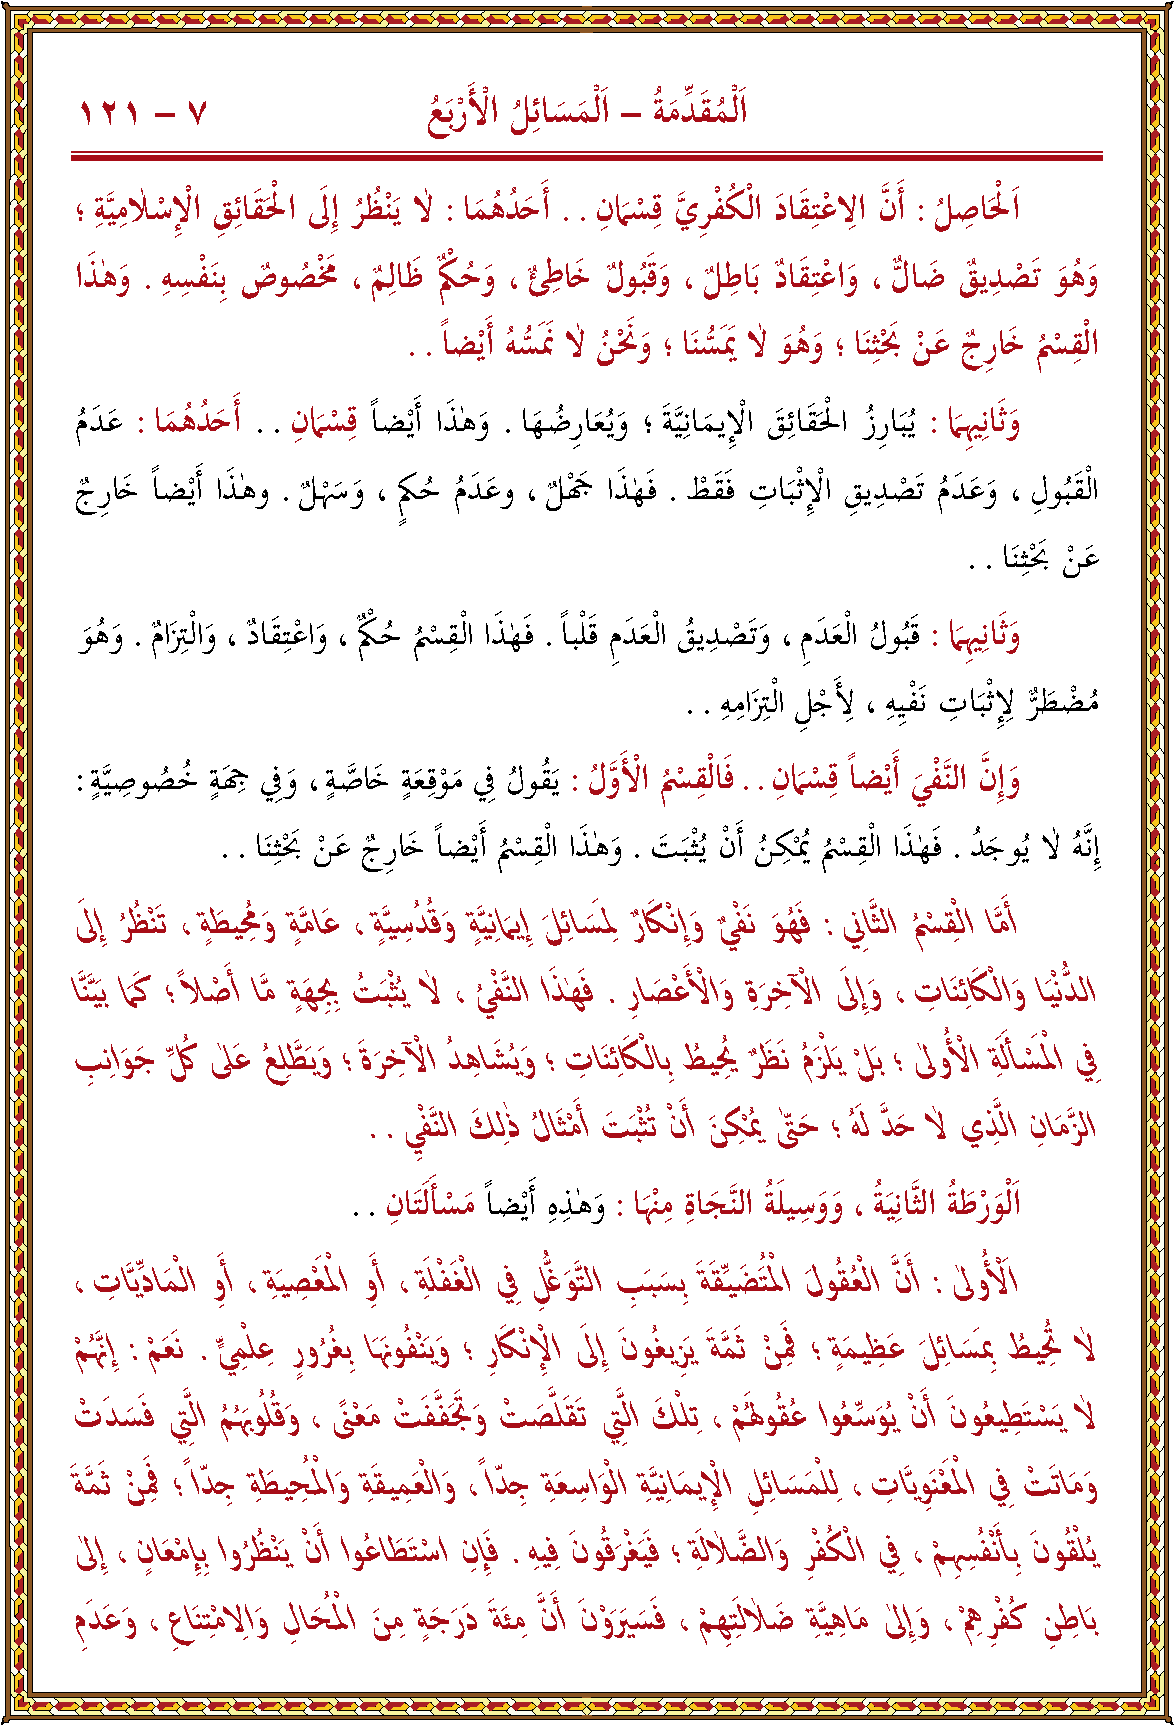 اَلْمُقَدِّمَةُ – اَلْمَسَائِلُ الْأَرْبَعُ ٧ – ١٢١
اَلْحَاصِلُ : أَنَّ الِاعْتِقَادَ الْكُفْرِيَّ قِسْمَانِ . . أَحَدُهُمَا : لَا يَنْظُرُ إِلَى الْحَقَائِقِ الْإِسْلَامِيَّةِ ؛
وَهُوَ تَصْدِيقٌ ضَالٌّ ، وَاعْتِقَادٌ بَاطِلٌ ، وَقَبُولٌ خَاطِئٌ ، وَحُكْمٌ ظَالِمٌ ، مَخْصُوصٌ بِنَفْسِهِ . وَهٰذَا
الْقِسْمُ خَارِجٌ عَنْ بَحْثِنَا ؛ وَهُوَ لَا يَمَسُّنَا ؛ وَنَحْنُ لَا نَمَسُّهُ أَيْضاً . .
وَثَانِيهِمَا : يُبَارِزُ الْحَقَائِقَ الْإِيمَانِيَّةَ ؛ وَيُعَارِضُهَا . وَهٰذَا أَيْضاً قِسْمَانِ . . أَحَدُهُمَا : عَدَمُ
الْقَبُولِ ، وَعَدَمُ تَصْدِيقِ الْإِثْبَاتِ فَقَطْ . فَهٰذَا جَهْلٌ ، وعَدَمُ حُكمٍ ، وَسَهْلٌ . وهٰذَا أَيْضاً خَارِجٌ
عَنْ بَحْثِنَا . .
وَثَانِيهِمَا : قَبُولُ الْعَدَمِ ، وَتَصْدِيقُ الْعَدَمِ قَلْباً . فَهٰذَا الْقِسْمُ حُكْمٌ ، وَاعْتِقَادٌ ، وَالْتِزَامٌ . وَهُوَ
مُضْطَرٌّ لِإِثْبَاتِ نَفْيِهِ ، لِأَجْلِ الْتِزَامِهِ . .
وَإِنَّ النَّفْيَ أَيْضاً قِسْمَانِ . . فَالْقِسْمُ الْأَوَّلُ : يَقُولُ فِي مَوْقِعَةٍ خَاصَّةٍ ، وَفِي جِهَةٍ خُصُوصِيَّةٍ :
إِنَّهُ لَا يُوجَدُ . فَهٰذَا الْقِسْمُ يُمْكِنُ أَنْ يُثْبَتَ . وَهٰذَا الْقِسْمُ أَيْضاً خَارِجٌ عَنْ بَحْثِنَا . .
أَمَّا الْقِسْمُ الثَّانِي : فَهُوَ نَفْيٌ وَإِنْكَارٌ لِمَسَائِلَ إِيمَانِيَّةٍ وَقُدُسِيَّةٍ ، عَامَّةٍ وَمُحِيطَةٍ ، تَنْظُرُ إِلَى
الدُّنْيَا وَالْكَائِنَاتِ ، وَإِلَى الْآخِرَةِ وَالْأَعْصَارِ . فَهٰذَا النَّفْيُ ، لَا يُثْبَتُ بِجِهَةٍ مَّا أَصْلاً ؛ كَمَا بَيَّنَّا
فِي الْمَسْأَلَةِ الْأُولٰى ؛ بَلْ يَلْزَمُ نَظَرٌ يُحِيطُ بِالْكَائِنَاتِ ؛ وَيُشَاهِدُ الْآخِرَةَ ؛ وَيَطَّلِعُ عَلٰى كُلِّ جَوَانِبِ
الزَّمَانِ الَّذِي لَا حَدَّ لَهُ ؛ حَتّٰى يُمْكِنَ أَنْ تُثْبَتَ أَمْثَالُ ذٰلِكَ النَّفْيِ . .
اَلْوَرْطَةُ الثَّانِيَةُ ، وَوَسِيلَةُ النَّجَاةِ مِنْهَا : وَهٰذِهِ أَيْضاً مَسْأَلَتَانِ . .
اَلْأُولٰى : أَنَّ الْعُقُولَ الْمُتَضَيِّقَةَ بِسَبَبِ التَّوَغُّلِ فِي الْغَفْلَةِ ، أَوِ الْمَعْصِيَةِ ، أَوِ الْمَادِّيَّاتِ ،
لَا تُحِيطُ بِمَسَائِلَ عَظِيمَةٍ ؛ فَمِنْ ثَمَّةَ يَزِيغُونَ إِلَى الْإِنْكَارِ ؛ وَيَنْفُونَهَا بِغُرُورٍ عِلْمِيٍّ . نَعَمْ : إِنَّهُمْ
لَا يَسْتَطِيعُونَ أَنْ يُوَسِّعُوا عُقُولَهُمْ ، تِلْكَ الَّتِي تَقَلَّصَتْ وَتَجَفَّفَتْ مَعْنًى ، وَقُلُوبُهُمُ الَّتِي فَسَدَتْ
وَمَاتَتْ فِي الْمَعْنَوِيَّاتِ ، لِلْمَسَائِلِ الْإِيمَانِيَّةِ الْوَاسِعَةِ جِدّاً ، وَالْعَمِيقَةِ وَالْمُحِيطَةِ جِدّاً ؛ فَمِنْ ثَمَّةَ
يُلْقُونَ بِأَنْفُسِهِمْ ، فِي الْكُفْرِ وَالضَّلَالَةِ ؛ فَيَغْرَقُونَ فِيهِ . فَإِنِ اسْتَطَاعُوا أَنْ يَنْظُرُوا بِإِمْعَانٍ ، إِلٰى
بَاطِنِ كُفْرِهِمْ ، وَإِلٰى مَاهِيَّةِ ضَلَالَتِهِمْ ، فَسَيَرَوْنَ أَنَّ مِئَةَ دَرَجَةٍ مِنَ الْمُحَالِ وَالِامْتِنَاعِ ، وَعَدَمِ